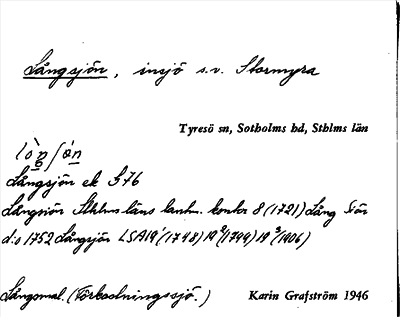 Långsjön, insjö s.v. Stormyra
Tyresö sn, Sotholms hd, Sthlms län
Långsjön ek S76
Långsiön Sthlms läns lantm. kontor 8 (1721) Lång Siön
d:o 1752 Långsjön LSA 19¹ (1748) 19² (1749) 19³ (1906)
Långsmal. (Förkastningssjö.)
Karin Grafström 1946